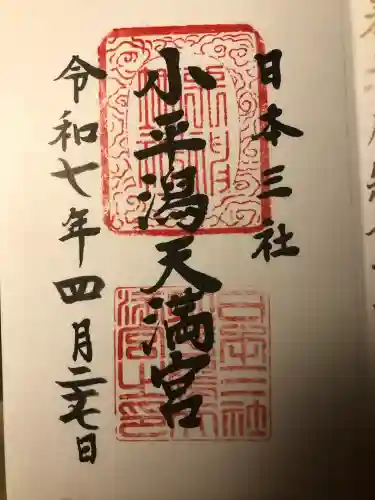 日本三社
小平潟天満宮
令和七年四月二十七日